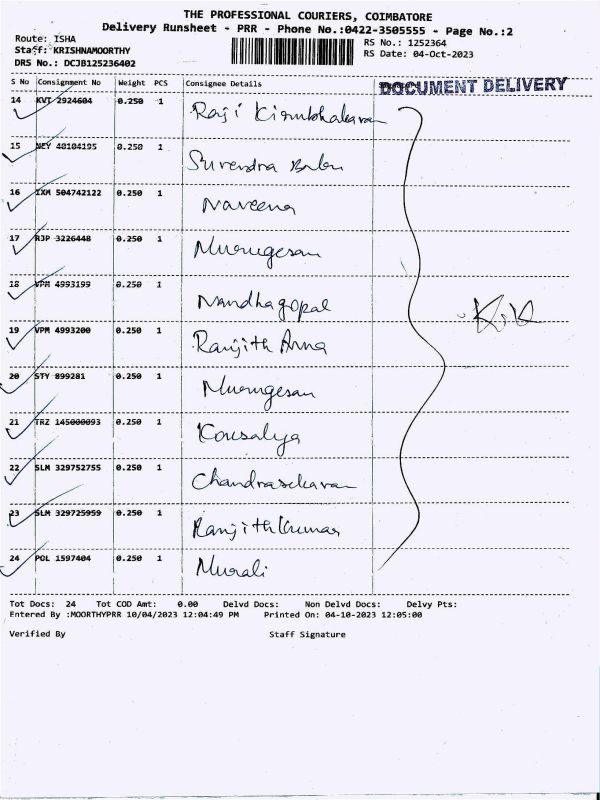 THE PROFESSIONAL COURIERS, COIMBATORE
Delivery Runsheet - PRR - Phone No.:0422-3505555 - Page No.:2
Route: ISHA
Staff: KRISHNAMOORTHY
DRS No.: DCJB125236402
RS No.: 1252364
RS Date: 04-Oct-2023
S No Consignment No Weight PCS Consignee Details
DOCUMENT DELIVERY
14 KVT 2924604 0.250 1 Raji
15 NEY 40104195 0.250 1 Surendra Babu
16 IXM 504742122 0.250 1 Naveena
17 RJP 3226448 0.250 1 Murugesan
18 VPM 4993199 0.250 1 Nandhagopal
19 VPM 4993200 0.250 1 Ranjith Anna
20 STY 899281 0.250 1 Murugesan
21 TRZ 145000093 0.250 1 Kousalya
22 SLM 329752755 0.250 1 Chandrasekaran
23 SLM 329725959 0.250 1 Ranjithkumar
24 POL 1597404 0.250 1 Murali
Tot Docs: 24 Tot COD Amt: 0.00 Delvd Docs: Non Delvd Docs: Delvy Pts:
Entered By :MOORTHYPRR 10/04/2023 12:04:49 PM Printed On: 04-10-2023 12:05:00
Verified By Staff Signature